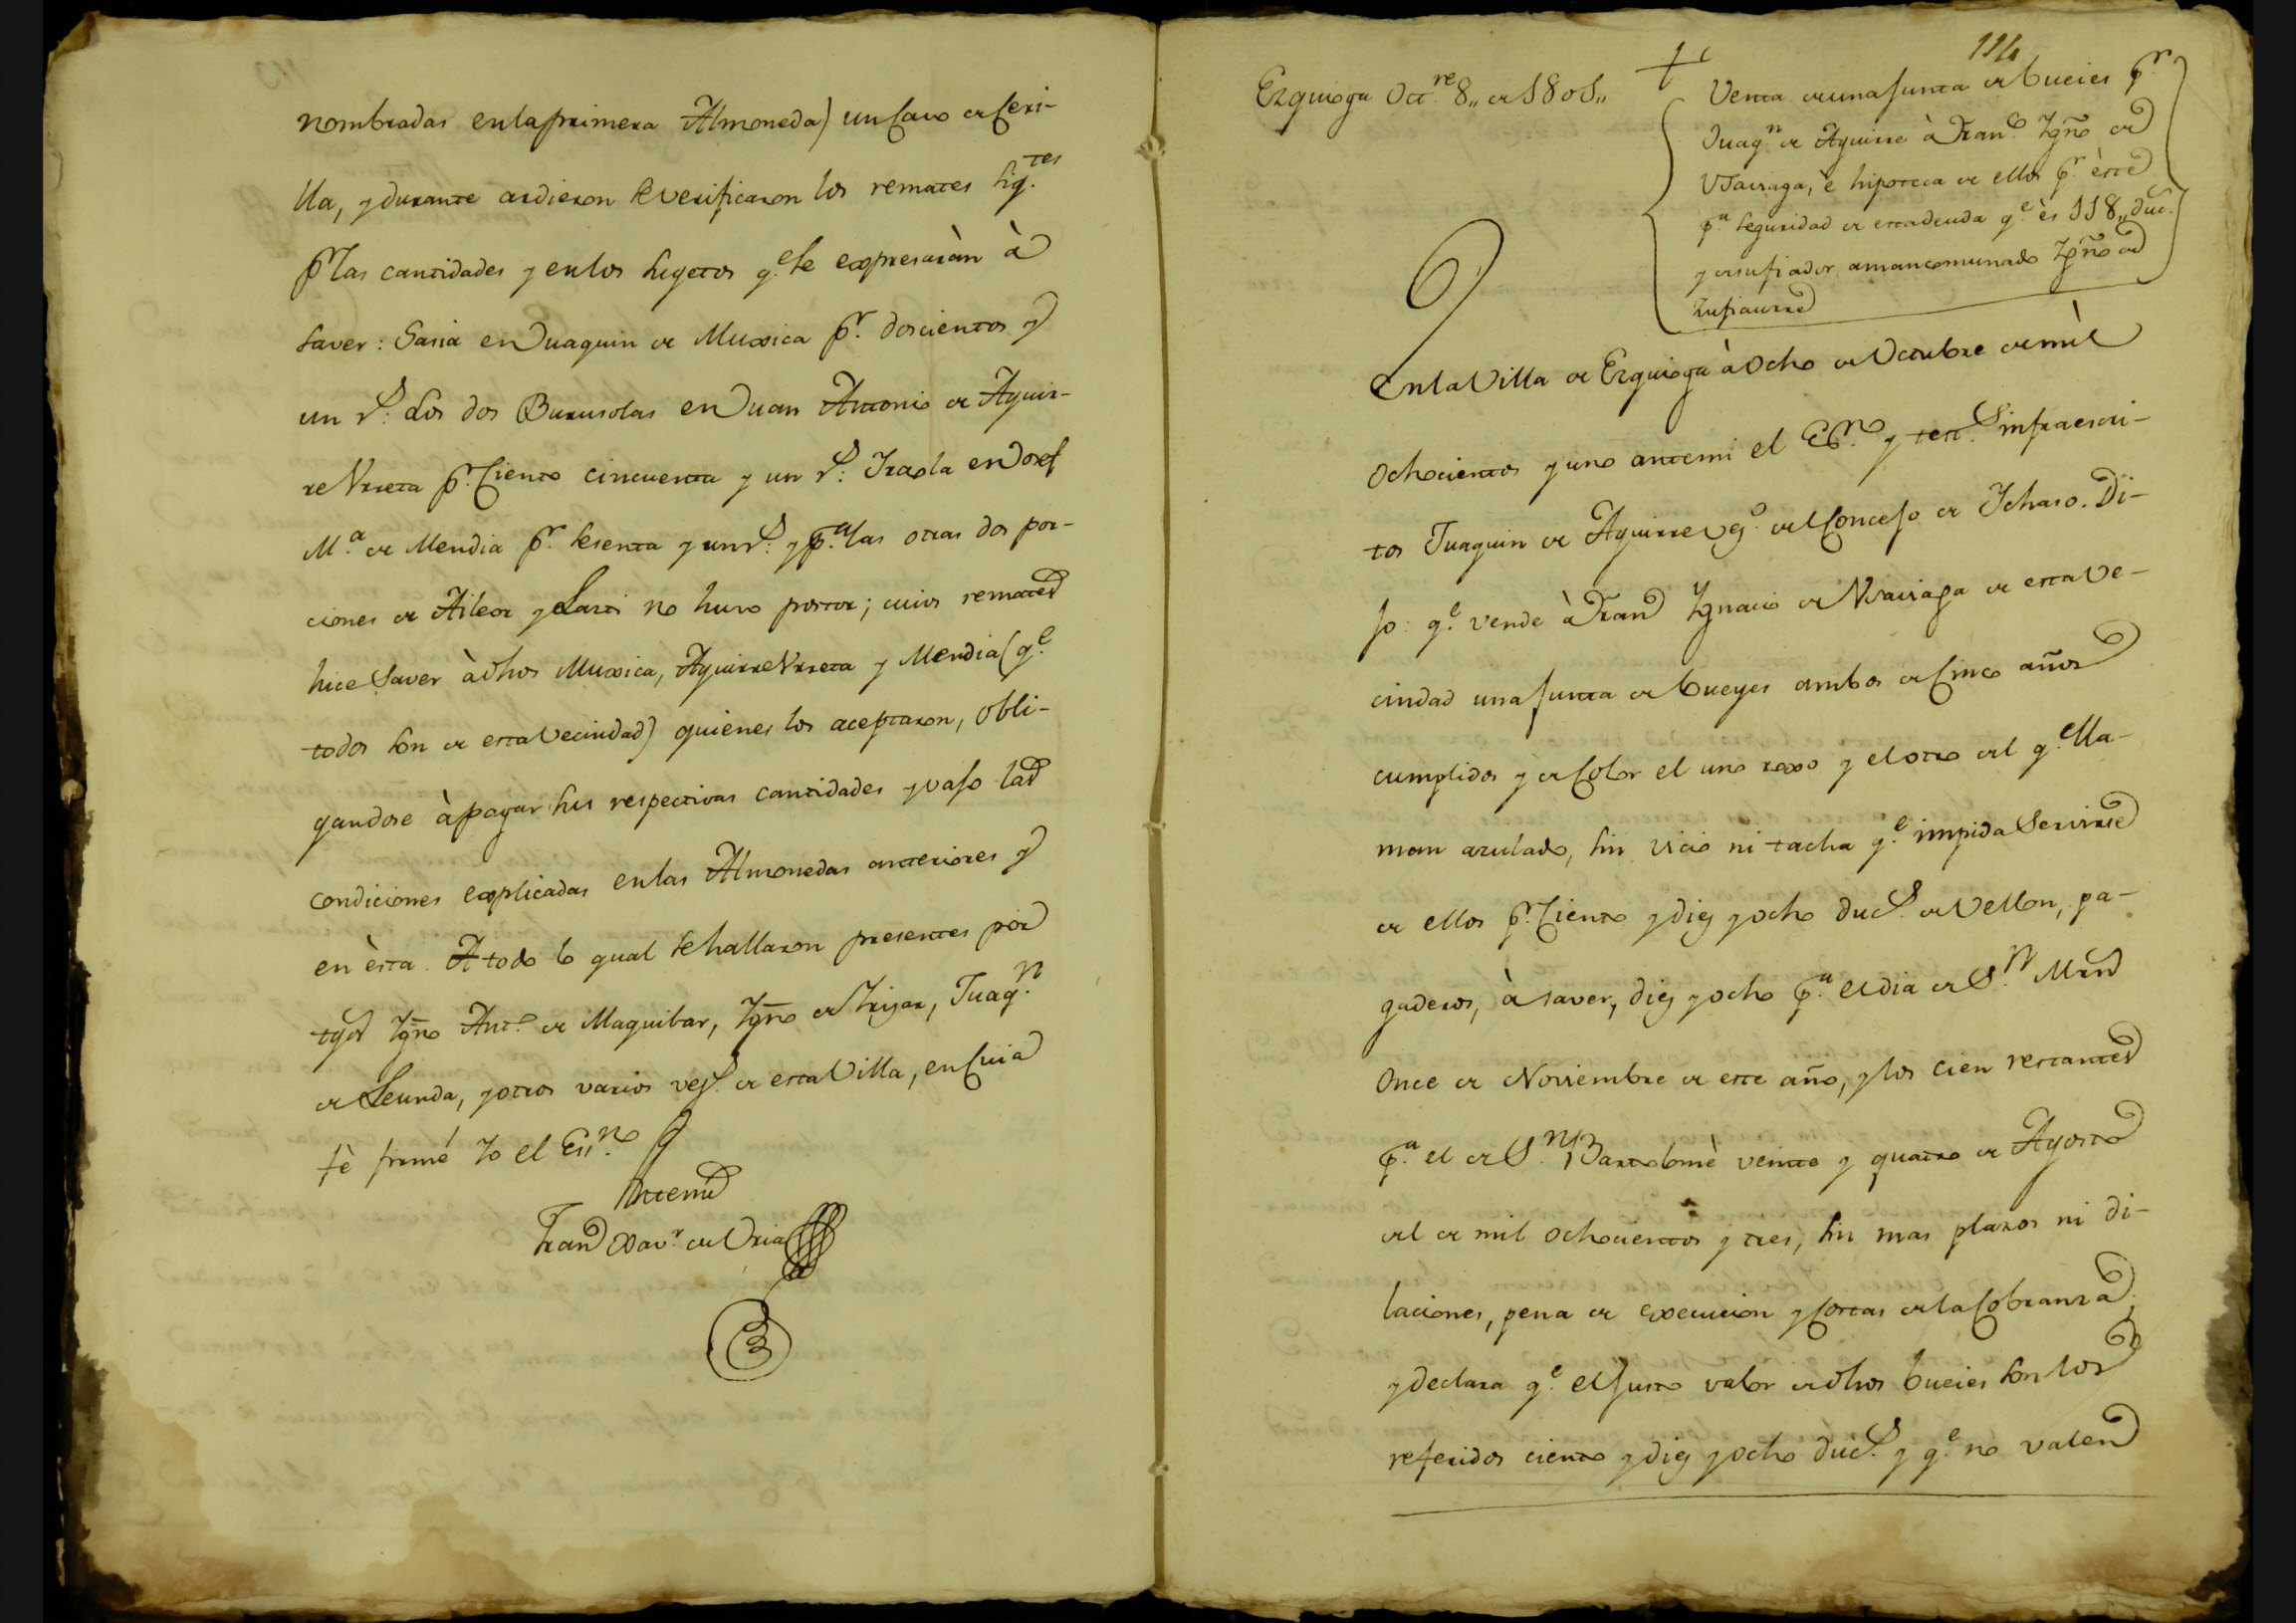 nombradas en la primera Almoneda) un cavo de ceri-
lla, y durante ardieron se verificaron los remates sig.tes
p.r las cantidades y en los sugetos q.e se expresaràn à
saver: Saria en Juaquin de Muxica p.r doscientos y
un r.s Los dos Burusolas en Juan Antonio de Aguir-
re Vrreta p.r Ciento cincuenta y un r.s Iraola en Josef
M.a de Mendia p.r sesenta y un r.s y p.a las otras dos por-
ciones de Aileor y Larti no huvo postor; cuios remates
hice saver à dhos Muxica, Aguirre Vrreta y Mendia (q.e
todos son de esta Vecindad) quienes los aceptaron, obli-
gandose à pagar sus respectivas cantidades y vajo las
condiciones explicadas en las Almonedas anteriores y
en èsta. A todo lo qual se hallaron presentes por
tgos Ygn.o Ant.o de Maquibar, Ygn.o de Yrigar, Juaq.n
de Leunda, y otros varios vez.s de esta Villa, en Cuia
fè firmé Yo el Ess.no
Antemi
Fran.co Xav.r de Oria
114
Ezquioga Oct.re 8,, de 1801,,
Venta de una junta de bueies p.r
Juaq.n de Aguirre à Fran.co Ygn.o de
Vsarraga, è hipoteca de ellos p.r èste
p.a seguridad de esta deuda q.e ès 118,, duc.s
y de su fiador amancomunado Ygn.o de
Zufiaurre
En la Villa de Ezquioga à Ocho de Octubre de mil
Ochocientos y uno antemi el Ess.no y test.s infraescri-
tos Juaquin de Aguirre vez.o del Concejo de Ichaso. Di-
jo: q.e vende à Fran.co Ygnacio de Vsarraga de esta Ve-
cindad una junta de bueyes ambos de Cinco años
cumplidos y de Color el uno roxo y el otro del q.e lla-
man azulado, sin vicio ni tacha q.e impida Servirse
de ellos p.r Ciento y diez y ocho duc.s de Vellon, pa-
gaderos, à saver, diez y ocho p.a el dia de S.n Mrn
Once de Noviembre de este año, y los cien restantes
p.a el de S.n Bartolomè veinte y quatro de Agosto
del de mil Ochocientos y tres, sin mas plazos ni di-
laciones, pena de execucion y Costas de la Cobranza;
y declara q.e el justo valor de dhos bueies son los
referidos ciento y diez y ocho duc.s y q.e no valen